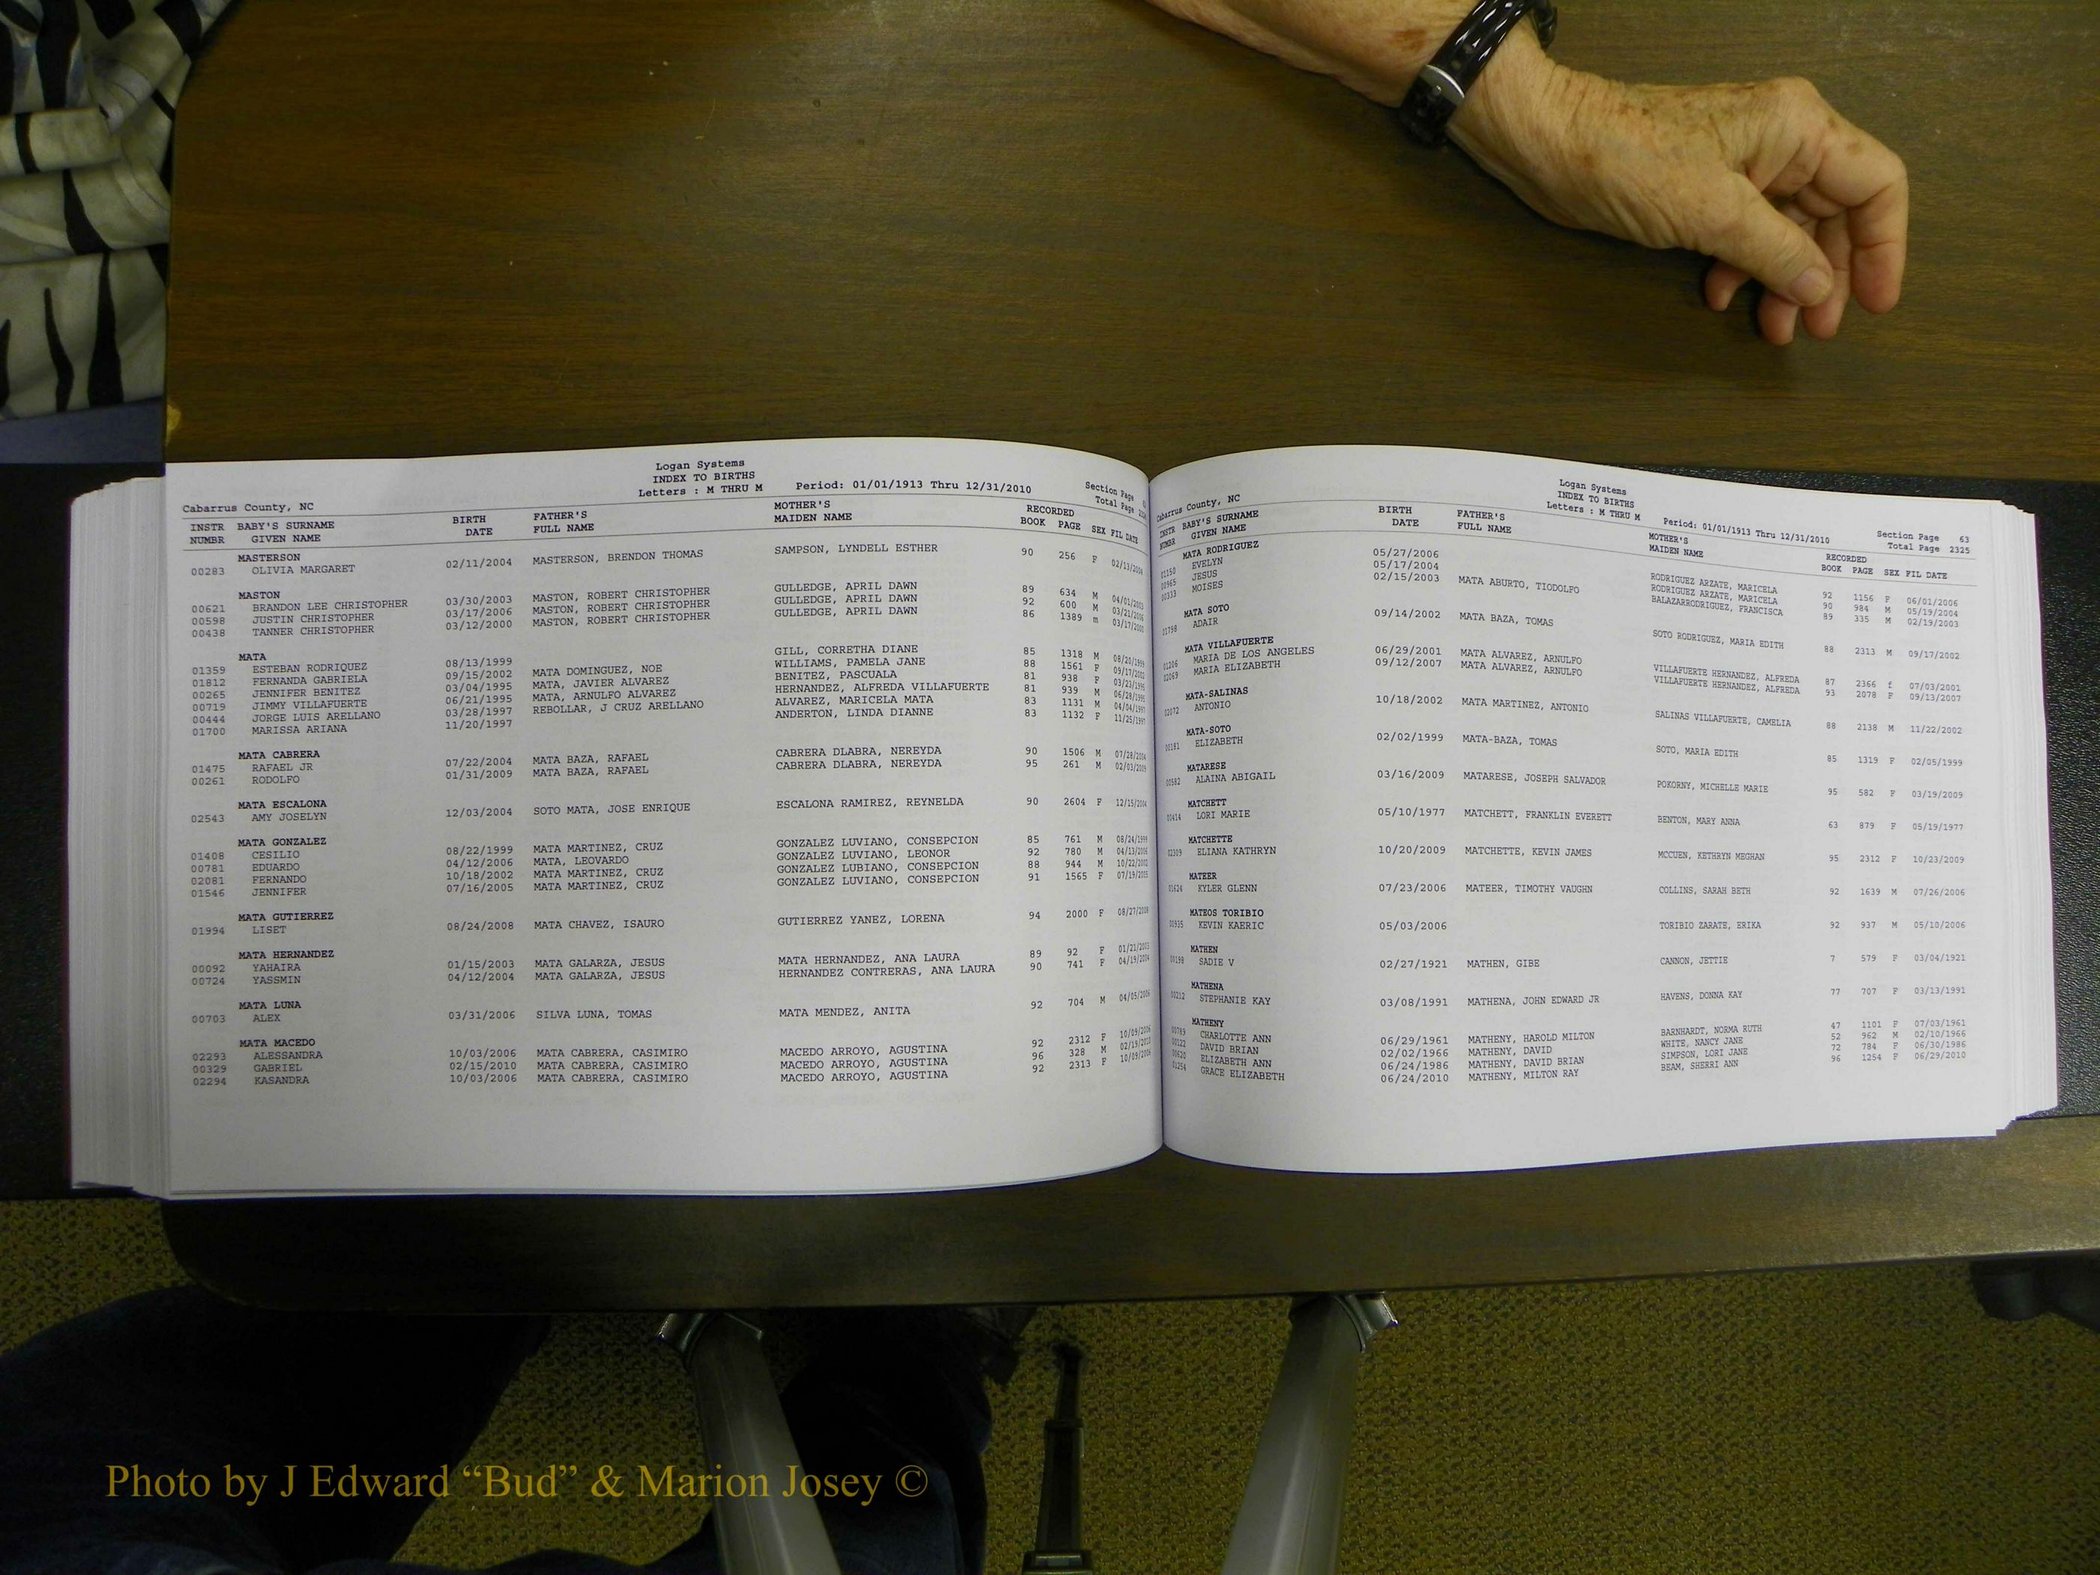 Logan Systems
INDEX TO BIRTHS
Cabarrus County, NC Letters : M THRU M Period: 01/01/1913 Thru 12/31/2010 Section Page
Total Page
INSTR BABY'S SURNAME BIRTH FATHER'S MOTHER'S RECORDED
NUMBR GIVEN NAME DATE FULL NAME MAIDEN NAME BOOK PAGE SEX FIL DATE
MASTERSON
00283 OLIVIA MARGARET 02/11/2004 MASTERSON, BRENDON THOMAS SAMPSON, LYNDELL ESTHER 90 256 F 02/13/2004
MASTON
00621 BRANDON LEE CHRISTOPHER 03/30/2003 MASTON, ROBERT CHRISTOPHER GULLEDGE, APRIL DAWN 89 634 M 04/01/2003
00598 JUSTIN CHRISTOPHER 03/17/2006 MASTON, ROBERT CHRISTOPHER GULLEDGE, APRIL DAWN 92 600 M 03/21/2006
00438 TANNER CHRISTOPHER 03/12/2000 MASTON, ROBERT CHRISTOPHER GULLEDGE, APRIL DAWN 86 1389 m 03/17/2000
MATA
01359 ESTEBAN RODRIQUEZ 08/13/1999 GILL, CORRETHA DIANE 85 1318 M 08/20/1999
01812 FERNANDA GABRIELA 09/15/2002 MATA DOMINGUEZ, NOE WILLIAMS, PAMELA JANE 88 1561 F 09/17/2002
00265 JENNIFER BENITEZ 03/04/1995 MATA, JAVIER ALVAREZ BENITEZ, PASCUALA 81 938 F 03/23/1995
00719 JIMMY VILLAFUERTE 06/21/1995 MATA, ARNULFO ALVAREZ HERNANDEZ, ALFREDA VILLAFUERTE 81 939 M 06/28/1995
00444 JORGE LUIS ARELLANO 03/28/1997 REBOLLAR, J CRUZ ARELLANO ALVAREZ, MARICELA MATA 83 1131 M 04/04/1997
01700 MARISSA ARIANA 11/20/1997 ANDERTON, LINDA DIANNE 83 1132 F 11/25/1997
MATA CABRERA
01475 RAFAEL JR 07/22/2004 MATA BAZA, RAFAEL CABRERA DLABRA, NEREYDA 90 1506 M 07/28/2004
00261 RODOLFO 01/31/2009 MATA BAZA, RAFAEL CABRERA DLABRA, NEREYDA 95 261 M 02/03/2009
MATA ESCALONA
02543 AMY JOSELYN 12/03/2004 SOTO MATA, JOSE ENRIQUE ESCALONA RAMIREZ, REYNELDA 90 2604 F 12/15/2004
MATA GONZALEZ
01408 CESILIO 08/22/1999 MATA MARTINEZ, CRUZ GONZALEZ LUVIANO, CONSEPCION 85 761 M 08/24/1999
00781 EDUARDO 04/12/2006 MATA, LEOVARDO GONZALEZ LUVIANO, LEONOR 92 780 M 04/13/2006
02081 FERNANDO 10/18/2002 MATA MARTINEZ, CRUZ GONZALEZ LUBIANO, CONSEPCION 88 944 M 10/22/2002
01546 JENNIFER 07/16/2005 MATA MARTINEZ, CRUZ GONZALEZ LUVIANO, CONSEPCION 91 1565 F 07/19/2005
MATA GUTIERREZ
01994 LISET 08/24/2008 MATA CHAVEZ, ISAURO GUTIERREZ YANEZ, LORENA 94 2000 F 08/27/2008
MATA HERNANDEZ
00092 YAHAIRA 01/15/2003 MATA GALARZA, JESUS MATA HERNANDEZ, ANA LAURA 89 92 F 01/21/2003
00724 YASSMIN 04/12/2004 MATA GALARZA, JESUS HERNANDEZ CONTRERAS, ANA LAURA 90 741 F 04/19/2004
MATA LUNA
00703 ALEX 03/31/2006 SILVA LUNA, TOMAS MATA MENDEZ, ANITA 92 704 M 04/05/2006
MATA MACEDO
02293 ALESSANDRA 10/03/2006 MATA CABRERA, CASIMIRO MACEDO ARROYO, AGUSTINA 92 2312 F 10/09/2006
00329 GABRIEL 02/15/2010 MATA CABRERA, CASIMIRO MACEDO ARROYO, AGUSTINA 96 328 M 02/19/2010
02294 KASANDRA 10/03/2006 MATA CABRERA, CASIMIRO MACEDO ARROYO, AGUSTINA 92 2313 F 10/09/2006
Logan Systems
INDEX TO BIRTHS
Cabarrus County, NC Letters : M THRU M Period: 01/01/1913 Thru 12/31/2010 Section Page 63
Total Page 2325
INSTR BABY'S SURNAME BIRTH FATHER'S MOTHER'S RECORDED
NUMBR GIVEN NAME DATE FULL NAME MAIDEN NAME BOOK PAGE SEX FIL DATE
MATA RODRIGUEZ
01150 EVELYN 05/27/2006 RODRIGUEZ ARZATE, MARICELA 92 1156 F 06/01/2006
00965 JESUS 05/17/2004 RODRIGUEZ ARZATE, MARICELA 90 984 M 05/19/2004
00333 MOISES 02/15/2003 MATA ABURTO, TIODOLFO BALAZARRODRIGUEZ, FRANCISCA 89 335 M 02/19/2003
MATA SOTO
01798 ADAIR 09/14/2002 MATA BAZA, TOMAS SOTO RODRIGUEZ, MARIA EDITH 88 2313 M 09/17/2002
MATA VILLAFUERTE
01206 MARIA DE LOS ANGELES 06/29/2001 MATA ALVAREZ, ARNULFO VILLAFUERTE HERNANDEZ, ALFREDA 87 2366 f 07/03/2001
02069 MARIA ELIZABETH 09/12/2007 MATA ALVAREZ, ARNULFO VILLAFUERTE HERNANDEZ, ALFREDA 93 2078 F 09/13/2007
MATA-SALINAS
02072 ANTONIO 10/18/2002 MATA MARTINEZ, ANTONIO SALINAS VILLAFUERTE, CAMELIA 88 2138 M 11/22/2002
MATA-SOTO
00181 ELIZABETH 02/02/1999 MATA-BAZA, TOMAS SOTO, MARIA EDITH 85 1319 F 02/05/1999
MATARESE
00582 ALAINA ABIGAIL 03/16/2009 MATARESE, JOSEPH SALVADOR POKORNY, MICHELLE MARIE 95 582 F 03/19/2009
MATCHETT
00414 LORI MARIE 05/10/1977 MATCHETT, FRANKLIN EVERETT BENTON, MARY ANNA 63 879 F 05/19/1977
MATCHETTE
02309 ELIANA KATHRYN 10/20/2009 MATCHETTE, KEVIN JAMES MCCUEN, KETHRYN MEGHAN 95 2312 F 10/23/2009
MATEER
01624 KYLER GLENN 07/23/2006 MATEER, TIMOTHY VAUGHN COLLINS, SARAH BETH 92 1639 M 07/26/2006
MATEOS TORIBIO
00935 KEVIN KAERIC 05/03/2006 TORIBIO ZARATE, ERIKA 92 937 M 05/10/2006
MATHEN
00198 SADIE V 02/27/1921 MATHEN, GIBE CANNON, JETTIE 7 579 F 03/04/1921
MATHENA
00212 STEPHANIE KAY 03/08/1991 MATHENA, JOHN EDWARD JR HAVENS, DONNA KAY 77 707 F 03/13/1991
MATHENY
00789 CHARLOTTE ANN 06/29/1961 MATHENY, HAROLD MILTON BARNHARDT, NORMA RUTH 47 1101 F 07/03/1961
00122 DAVID BRIAN 02/02/1966 MATHENY, DAVID WHITE, NANCY JANE 52 962 M 02/10/1966
00620 ELIZABETH ANN 06/24/1986 MATHENY, DAVID BRIAN SIMPSON, LORI JANE 72 784 F 06/30/1986
01254 GRACE ELIZABETH 06/24/2010 MATHENY, MILTON RAY BEAM, SHERRI ANN 96 1254 F 06/29/2010
Photo by J Edward “Bud” & Marion Josey ©